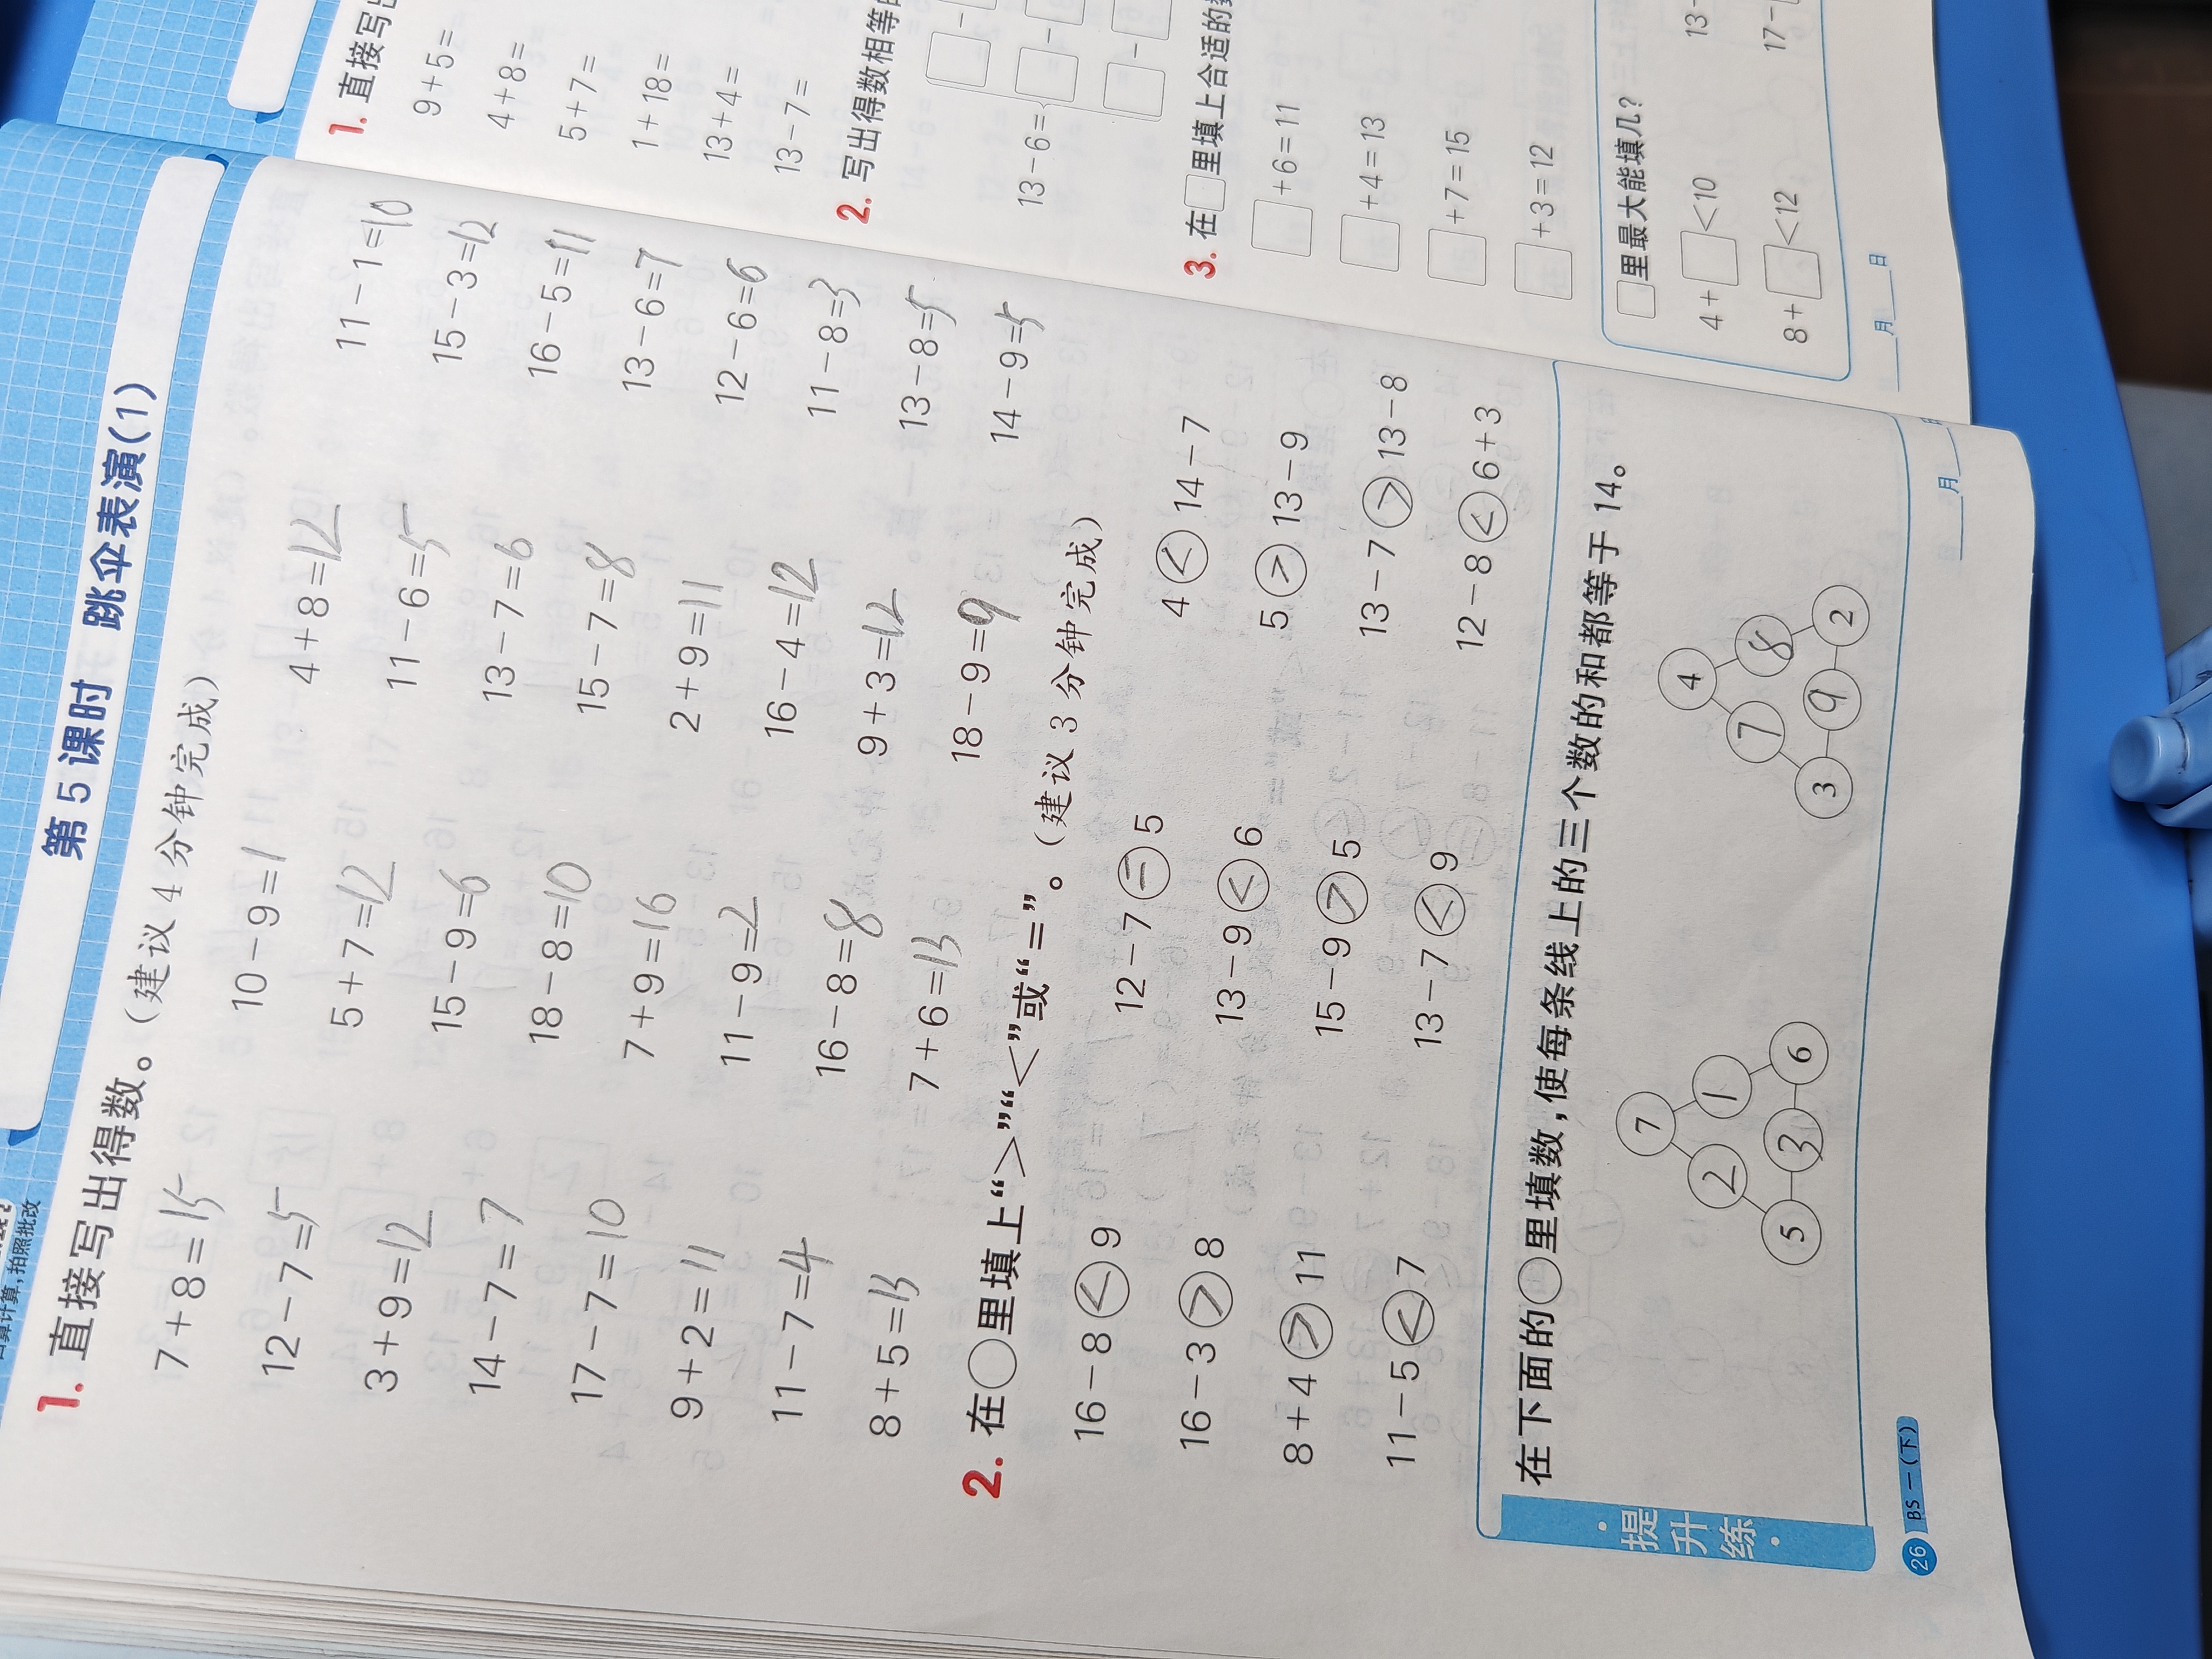 口算计算,拍照批改
第5课时 跳伞表演(1)
1. 直接写出得数。(建议4分钟完成)
7+8=15 10-9=1 4+8=12 11-1=10
12-7=5 5+7=12 11-6=5 15-3=12
3+9=12 15-9=6 13-7=6 16-5=11
14-7=7 18-8=10 15-7=8 13-6=7
17-7=10 7+9=16 2+9=11 12-6=6
9+2=11 11-9=2 16-4=12 11-8=3
11-7=4 16-8=8 9+3=12 13-8=5
8+5=13 7+6=13 18-9=9 14-9=5
2. 在○里填上“>”“<”或“=”。(建议3分钟完成)
16-8<9 12-7=5 4<14-7
16-3>8 13-9<6 5>13-9
8+4>11 15-9>5 13-7>13-8
11-5<7 13-7<9 12-8<6+3
·提升练·
在下面的○里填数,使每条线上的三个数的和都等于14。
7 4
2 1 7 8
5 3 6 3 9 2
26 BS 一(下) 月
1. 直接写出
9+5=
4+8=
5+7=
1+18=
13+4=
13-7=
2. 写出得数相等的
□-
13-6= □-
□-
3. 在□里填上合适的
□+6=11
□+4=13
□+7=15
□+3=12
□里最大能填几?
4+□<10 13-
8+□<12 17-
月 日